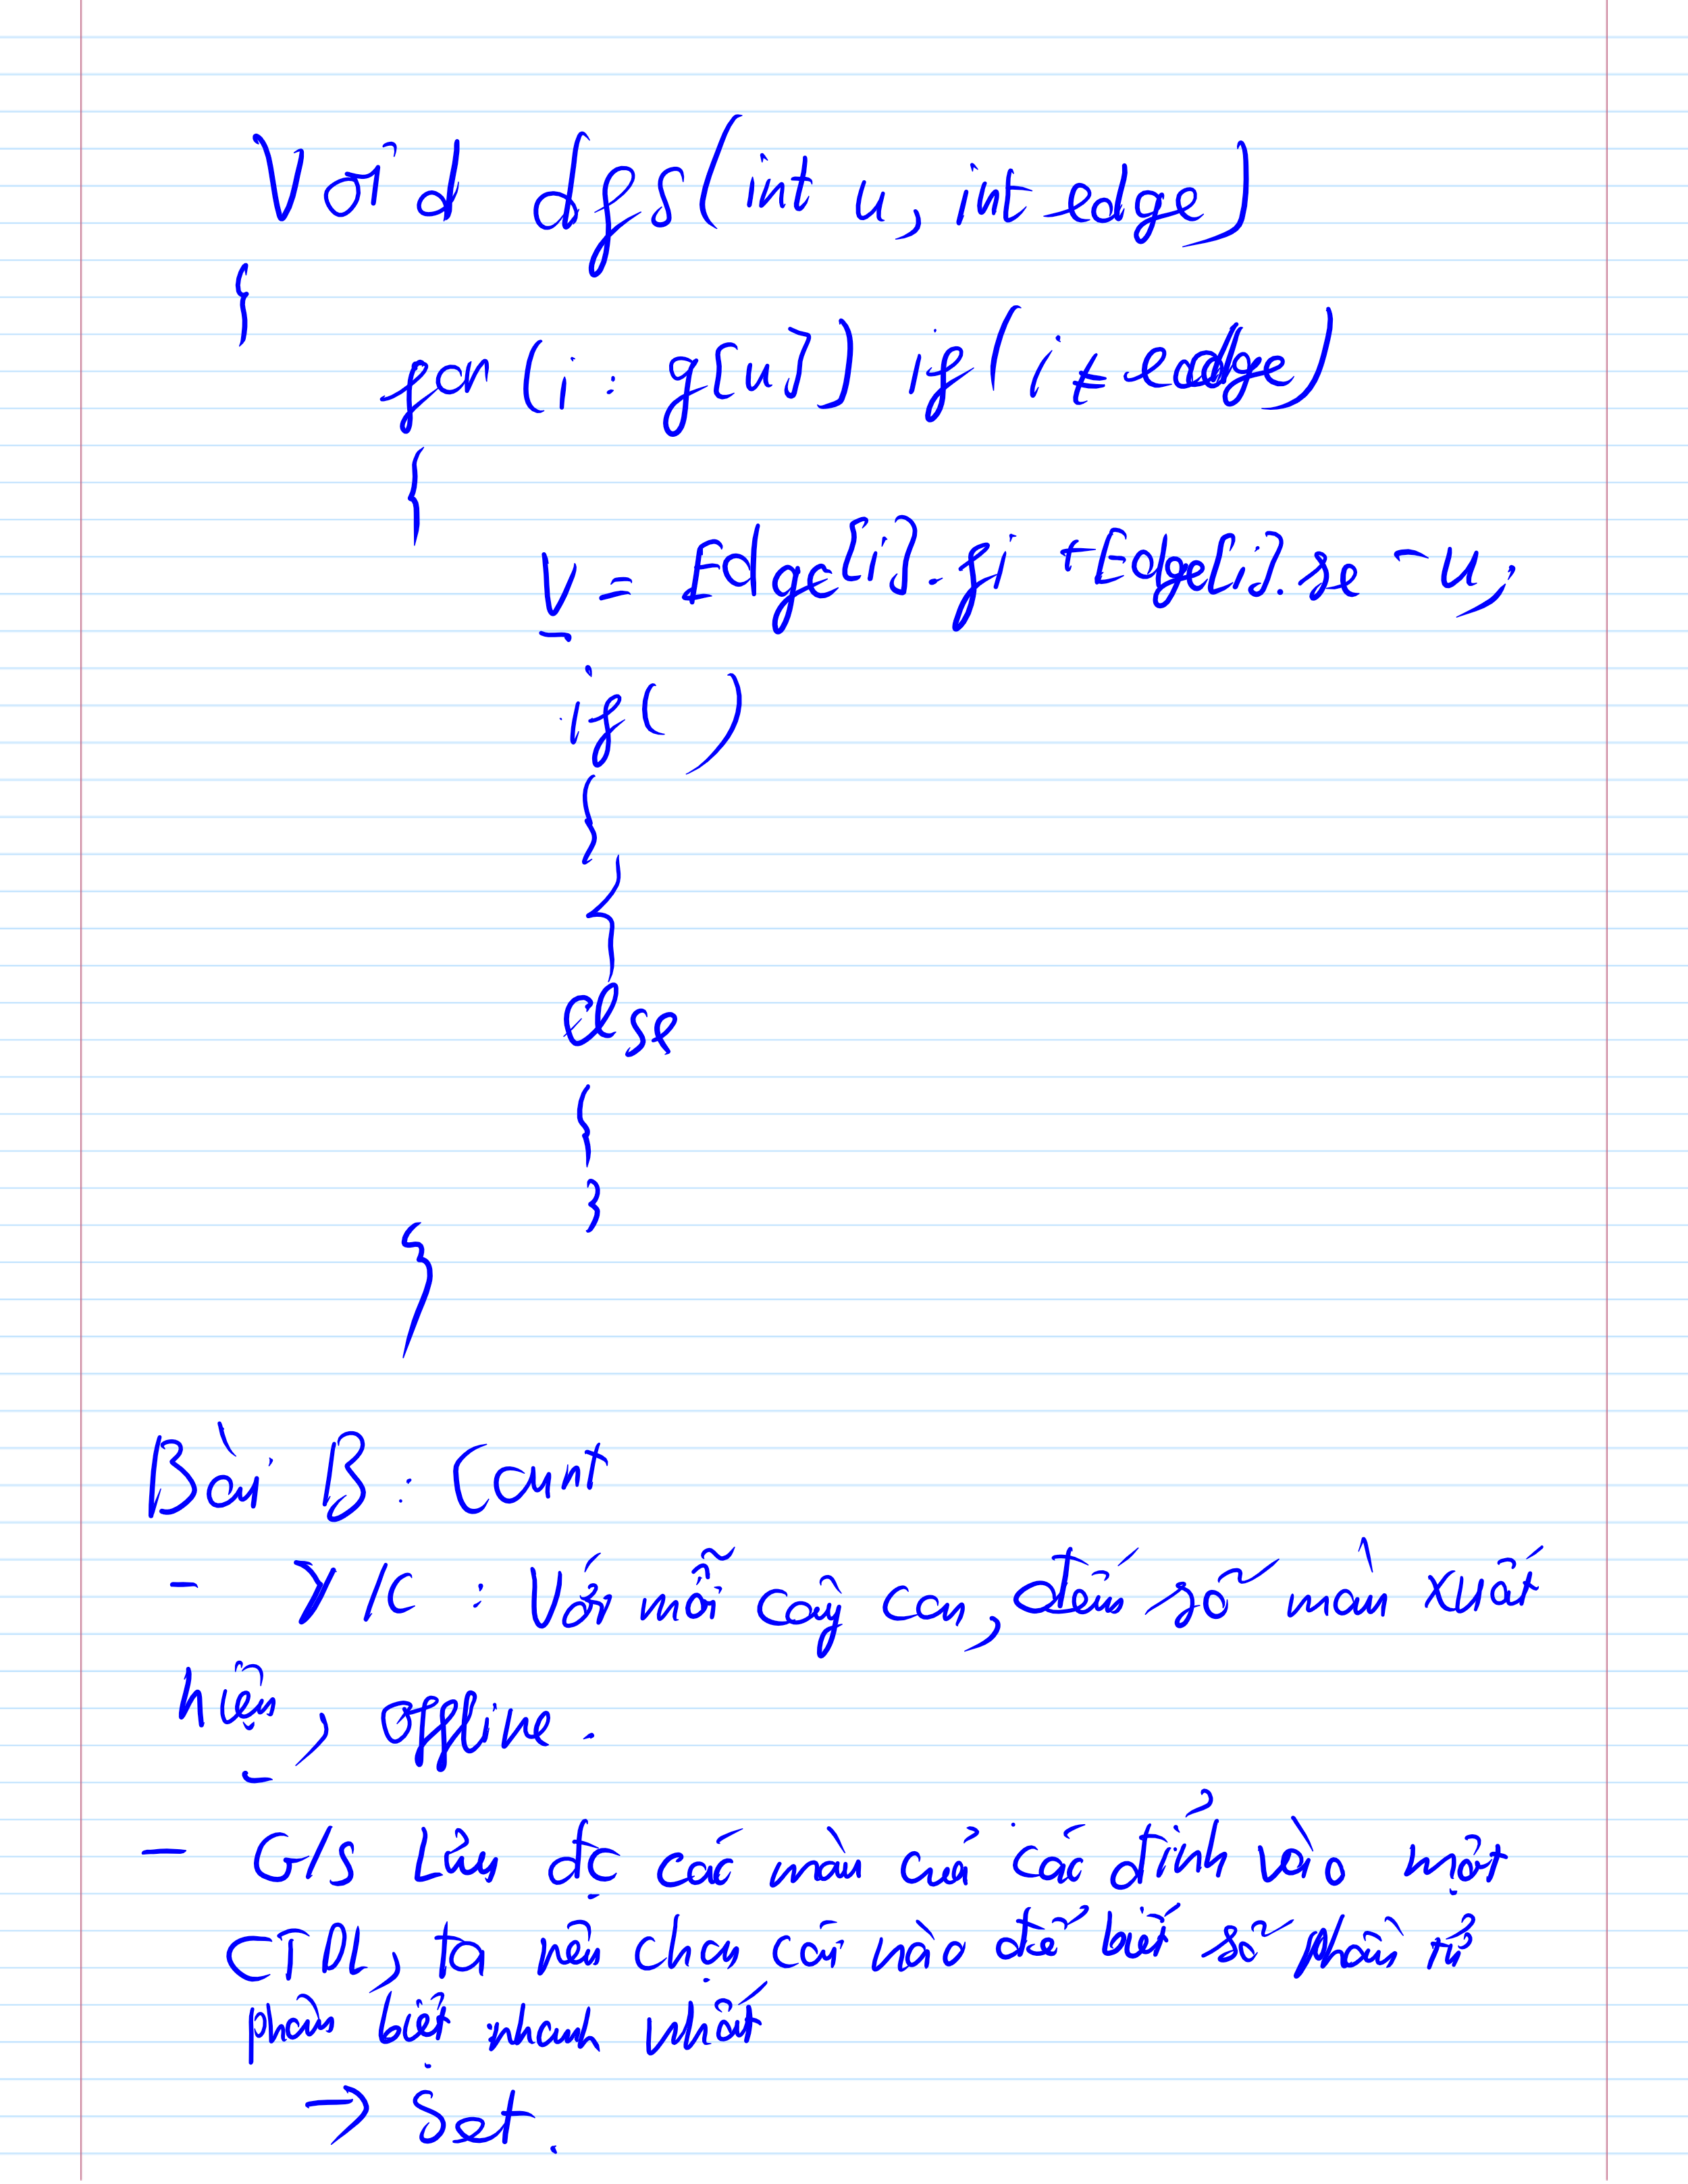 Void dfs(int u, int edge)
{
for (i : g[u]) if (i ≠ edge)
{
V = Edge[i].fi + Edge[i].se - u,
if ( )
{
}
else
{
}
}
Bài B : Count
- Y/C : Với mỗi cây con, đếm số màu xuất
hiện, offline.
- G/S Lưu đc các màu của các đỉnh vào một
CTDL, ta nên chọn cái nào để biết số phần tử
phân biệt nhanh nhất
→ Set.